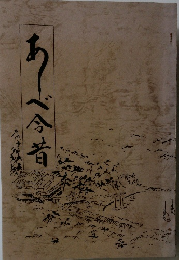 あしべ今昔